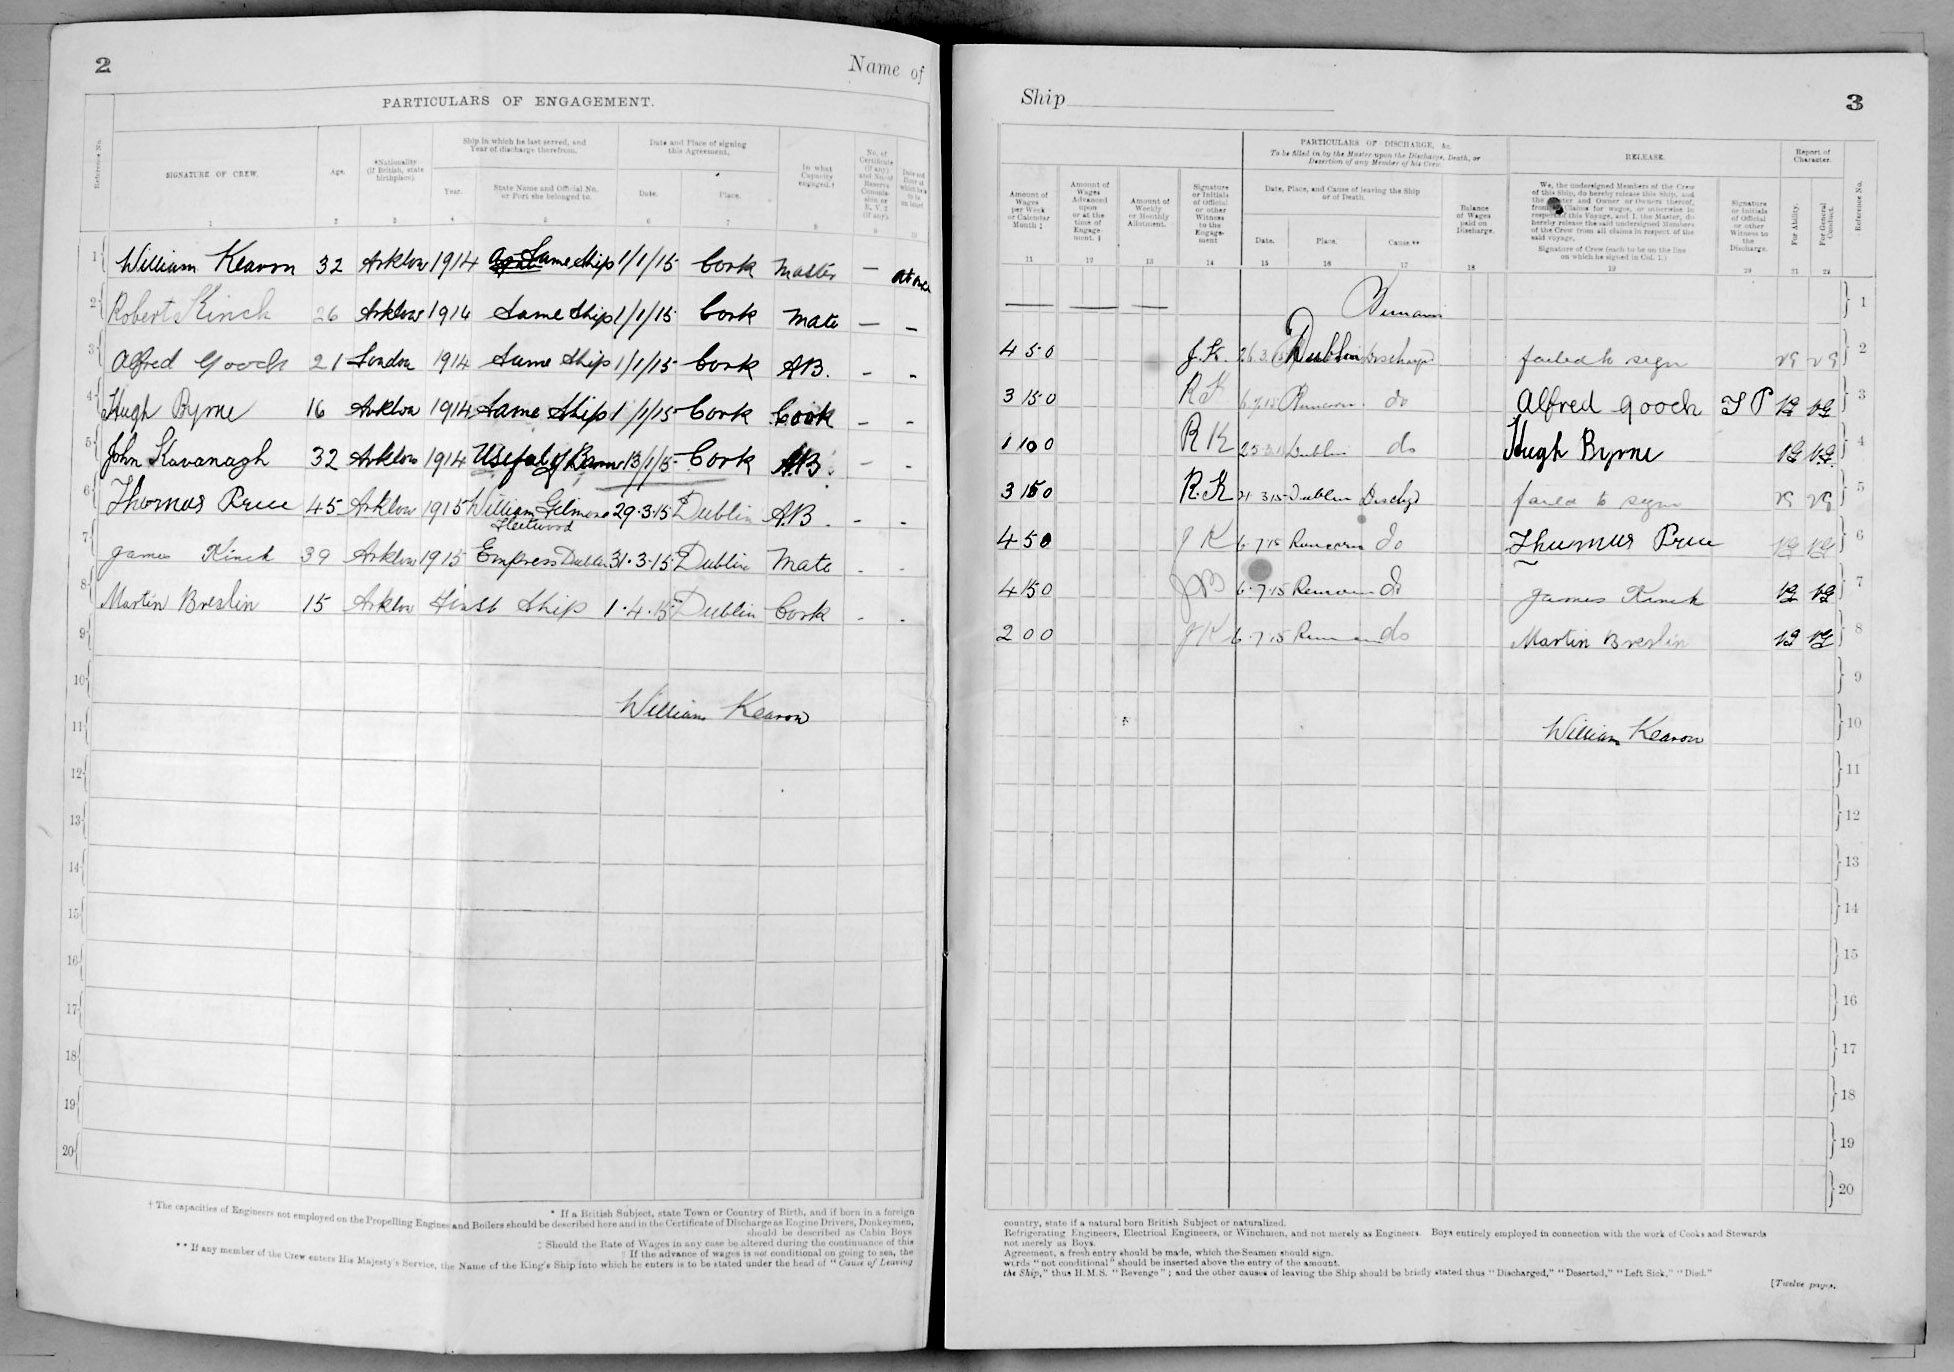 2
Name of
PARTICULARS OF ENGAGEMENT.
Reference No.
SIGNATURE OF CREW.
Age.
*Nationality (If British, state birthplace).
Ship in which he last served, and Year of discharge therefrom.
Year.
State Name and Official No. or Port she belonged to.
Date and Place of signing this Agreement.
Date.
Place.
In what Capacity engaged.†
1 2 3 4 5 6 7 8 9 10
1 William Kearon 32 Arklow 1914 Same Ship 1/1/15 Cork Master — at once
2 Robert Kinch 26 Arklow 1914 Same Ship 1/1/15 Cork Mate — -
3 Alfred Gooch 21 London 1914 Same Ship 1/1/15 Cork AB. - -
4 Hugh Byrne 16 Arklow 1914 Same Ship 1/1/15 Cork Cook - -
5 John Kavanagh 32 Arklow 1914 Useful of 13/1/15 Cork AB. - -
6 Thomas Price 45 Arklow 1915 William Gilmore Fleetwood 29.3.15 Dublin AB. - -
7 James Kinch 39 Arklow 1915 Empress Dublin 31.3.15 Dublin Mate - -
8 Martin Breslin 15 Arklow First Ship 1.4.15 Dublin Cook - -
9
10
William Kearon
11
12
13
14
15
16
17
18
19
20
* If a British Subject, state Town or Country of Birth, and if born in a foreign
† The capacities of Engineers not employed on the Propelling Engines and Boilers should be described here and in the Certificate of Discharge as Engine Drivers, Donkeymen,
should be described as Cabin Boys
‡ Should the Rate of Wages in any case be altered during the continuance of this
If the advance of wages is not conditional on going to sea, the
** If any member of the Crew enters His Majesty's Service, the Name of the King's Ship into which he enters is to be stated under the head of "Cause of Leaving
Ship
3
PARTICULARS OF DISCHARGE, &c.
To be filled in by the Master upon the Discharge, Death, or Desertion of any Member of his Crew.
RELEASE.
Report of Character.
Amount of Wages per Week or Calendar Month ‡
Amount of Wages Advanced upon or at the time of Engagement. §
Amount of Weekly or Monthly Allotment.
Signature or Initials of Official or other Witness to the Engagement
Date, Place, and Cause of leaving the Ship or of Death.
Date.
Place.
Cause.**
Balance of Wages paid on Discharge.
We, the undersigned Members of the Crew of this Ship, do hereby release this Ship, and the Owner and Owner or Owners thereof, from all Claims for wages, or otherwise in respect of this Voyage, and I, the Master, do hereby release the said undersigned Members of the Crew from all claims in respect of the said voyage.
Signature of Crew (each to be on the line on which he signed in Col. 1.)
Signature or Initials of Official or other Witness to the Discharge.
For Ability.
For General Conduct.
Reference No.
11 12 13 14 15 16 17 18 19 20 21 22
— — — Remains 1
4 5 0 J.K. 26.3.15 Dublin Discharged failed to sign VG VG 2
3 15 0 RK 6.7.15 Runcorn do Alfred Gooch T P VG VG 3
1 10 0 RK Dublin do Hugh Byrne VG VG 4
3 15 0 R.K 3.15 Dublin Dischgd failed to sign VG VG 5
4 5 0 JK 6.7.15 Runcorn do Thomas Price VG VG 6
4 15 0 6.7.15 Runcorn do James Kinch VG VG 7
2 0 0 JK 6.7.15 Runcorn do Martin Breslin VG VG 8
9
10
William Kearon
11
12
13
14
15
16
17
18
19
20
country, state if a natural born British Subject or naturalized.
Refrigerating Engineers, Electrical Engineers, or Winchmen, and not merely as Engineers. Boys entirely employed in connection with the work of Cooks and Stewards
not merely as Boys.
Agreement, a fresh entry should be made, which the Seamen should sign.
words "not conditional" should be inserted above the entry of the amount.
the Ship," thus H.M.S. "Revenge"; and the other causes of leaving the Ship should be briefly stated thus "Discharged," "Deserted," "Left Sick," "Died."
[Twelve pages.